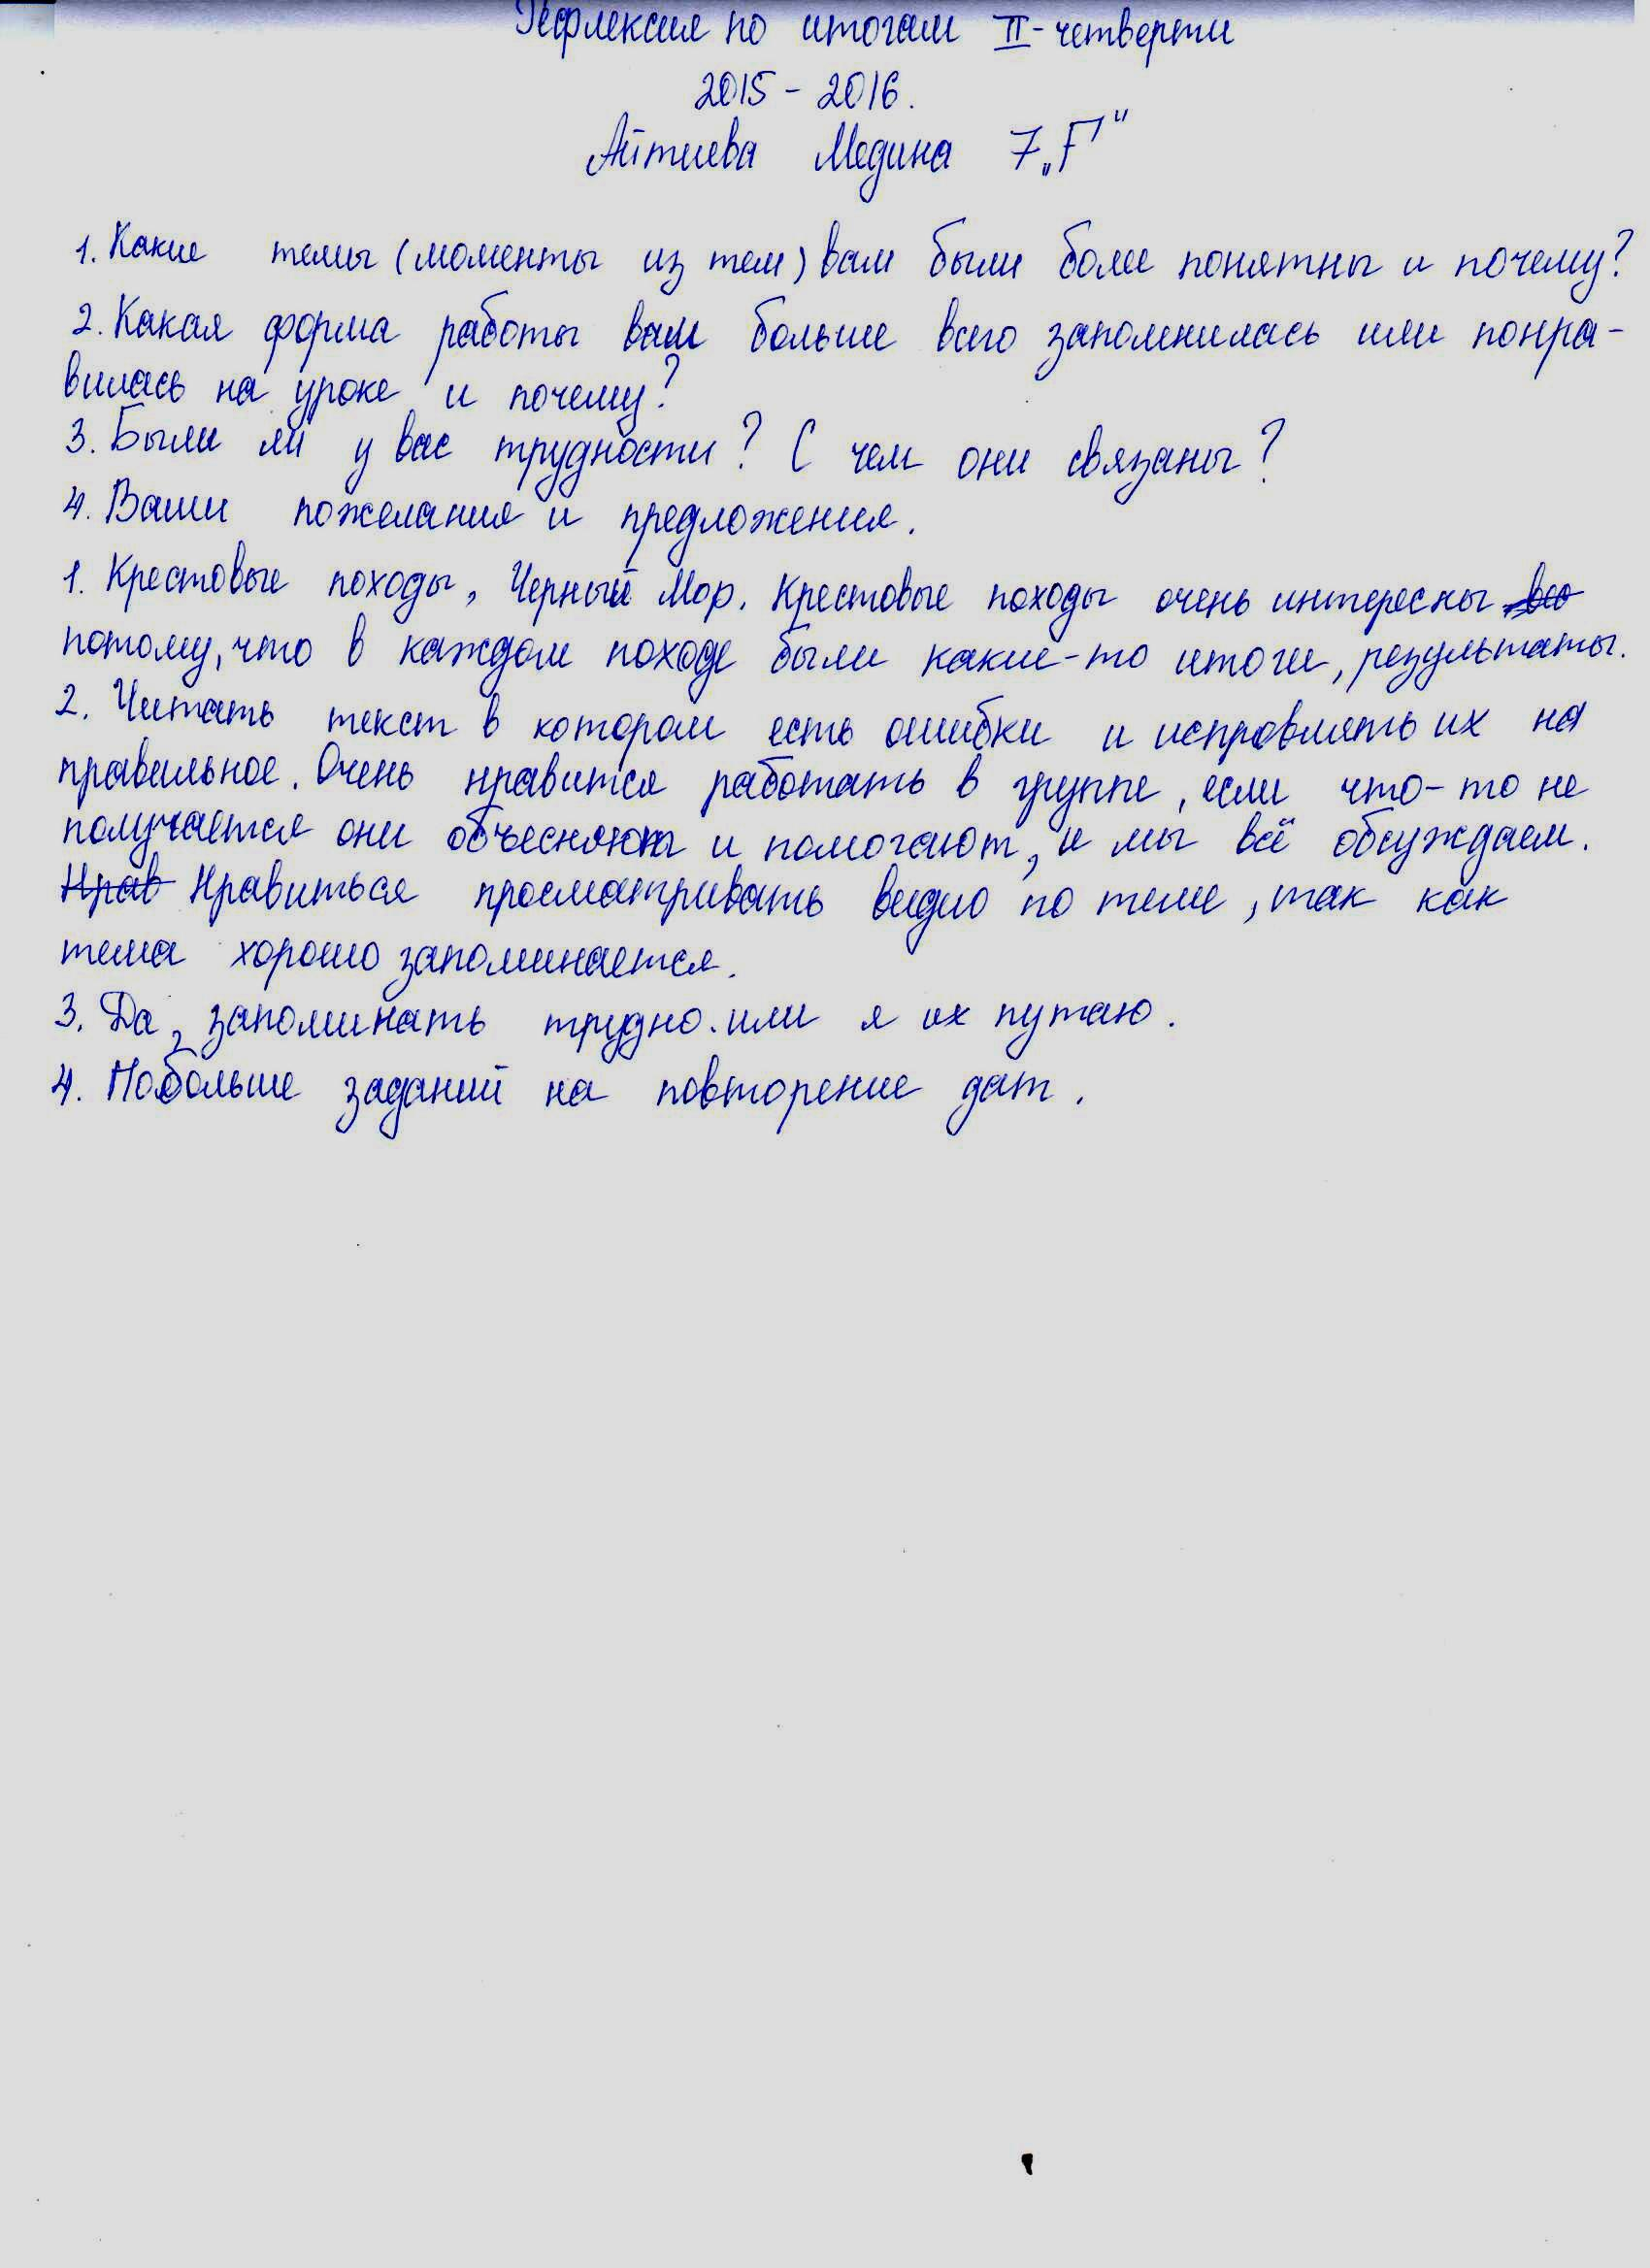 Рефлексия по итогам II-четверти
2015 - 2016.
Айтиева Медина 7 „Г"
1. Какие темы (моменты из тем) вам были более понятны и почему?
2. Какая форма работы вам больше всего запомнилась или понра-
вилась на уроке и почему?
3. Были ли у вас трудности? С чем они связаны?
4. Ваши пожелания и предложения.
1. Крестовые походы, Черный Мор. Крестовые походы очень интересны
потому, что в каждом походе были какие-то итоги, результаты.
2. Читать текст в котором есть ошибки и исправлять их на
правильное. Очень нравится работать в группе, если что-то не
получается они объесняют и помогают, и мы всё обсуждаем.
Нрав Нравиться просматривать видио по теме, так как
тема хорошо запоминается.
3. Да, запоминать трудно. или я их путаю.
4. Побольше заданий на повторение дат.